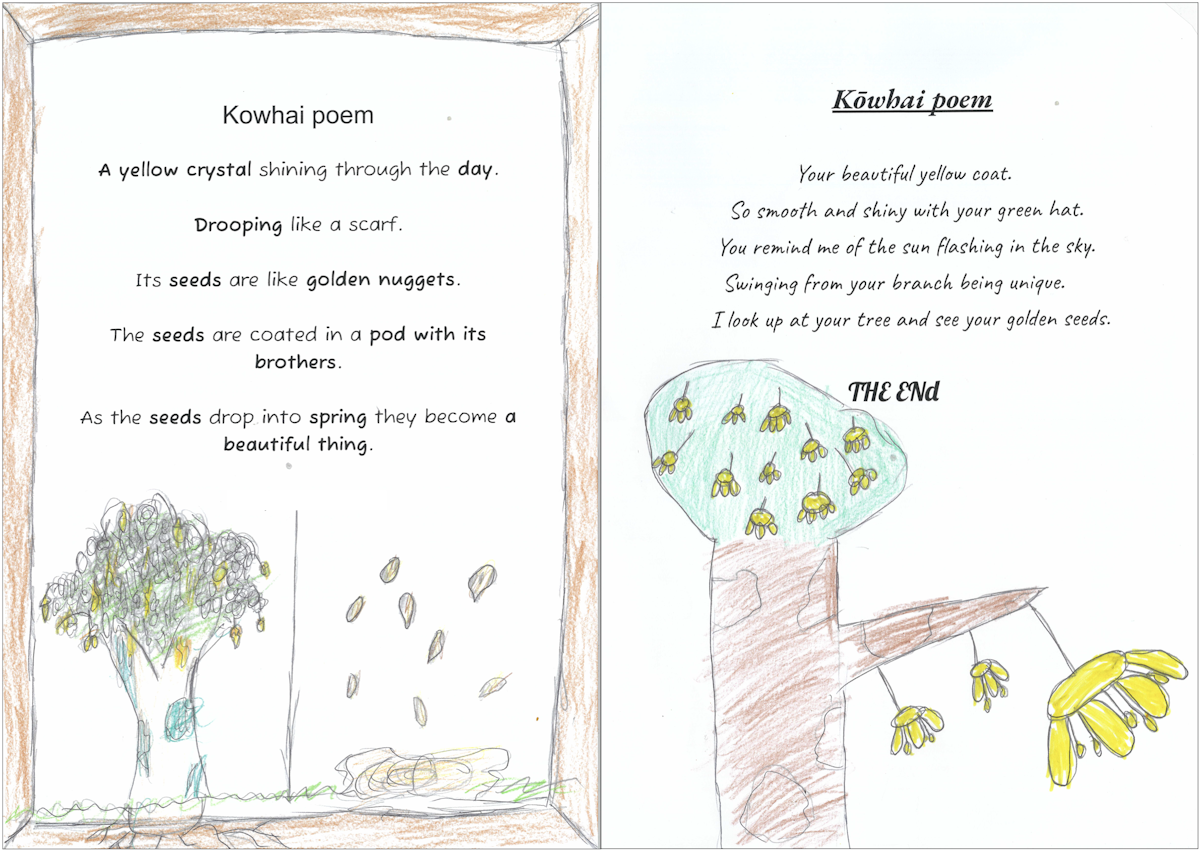 Kowhai poem
A yellow crystal shining through the day.
Drooping like a scarf.
Its seeds are like golden nuggets.
The seeds are coated in a pod with its
brothers.
As the seeds drop into spring they become a
beautiful thing.
Kōwhai poem
Your beautiful yellow coat.
So smooth and shiny with your green hat.
You remind me of the sun flashing in the sky.
Swinging from your branch being unique.
I look up at your tree and see your golden seeds.
THE ENd